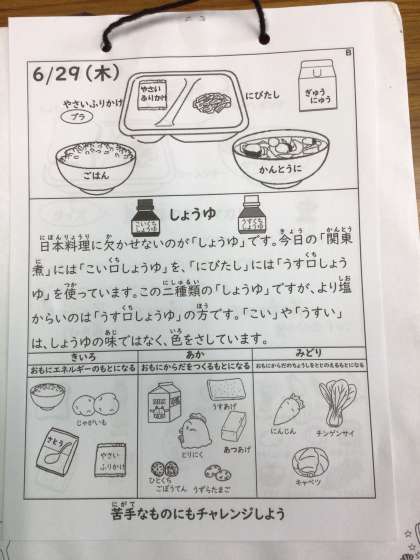 B
6/29(木)
やさいふりかけ
プラ
やさい
ふりかけ
にびたし
ぎゅう
にゅう
ごはん
かんとうに
こいくち
しょうゆ
しょうゆ
うすくち
しょうゆ
日本料理に欠かせないのが「しょうゆ」です。今日の「関東
煮」には「こい口しょうゆ」を、「にびたし」には「うす口しょう
ゆ」を使っています。この二種類の「しょうゆ」ですが、より塩
からいのは「うす口しょうゆ」の方です。「こい」や「うすい」
は、しょうゆの味ではなく、色をさしています。
きいろ
おもにエネルギーのもとになる
じゃがいも
さとう
やさい
ふりかけ
あか
おもにからだをつくるもとになる
うすあげ
とりにく
あつあげ
ひとくち
ごぼうてん
うずらたまご
みどり
おもにからだのちょうしをととのえるもとになる
にんじん
チンゲンサイ
キャベツ
苦手なものにもチャレンジしよう